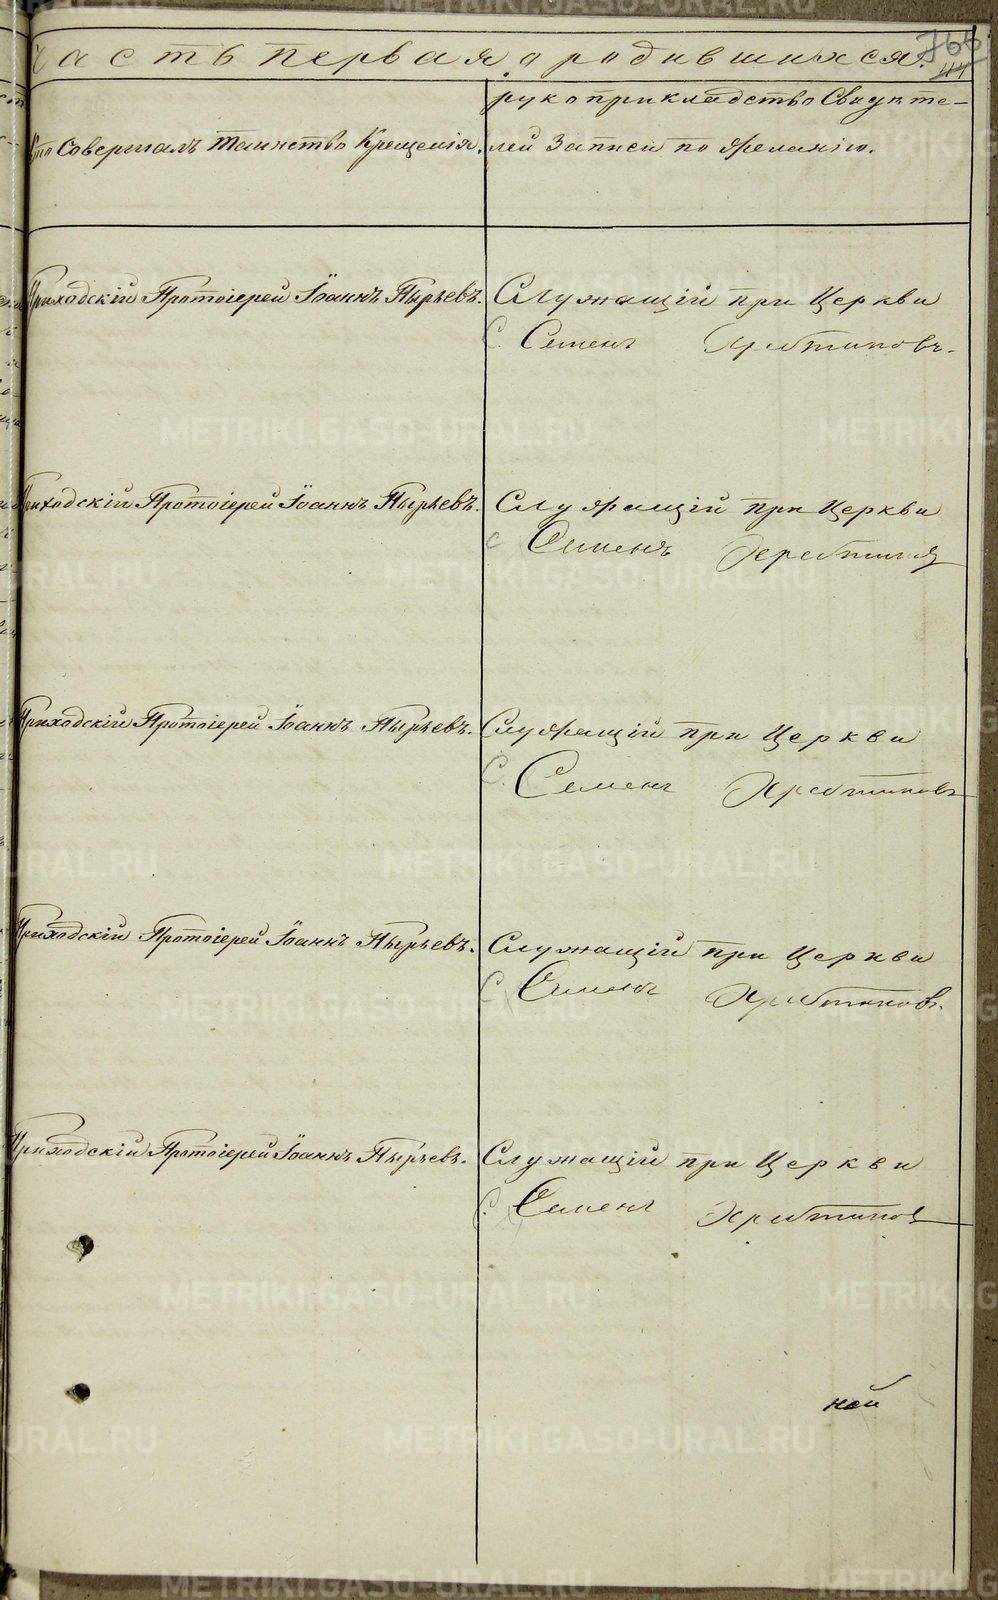 Часть первая о родившихся.
Кто Совершалъ таинство Крещенія.
рукоприкладство Свидѣте-
лей Записи по желанію.
Приходскій Протоіерей Іоаннъ Пырьевъ.
Служащій при Церкви
С. Семенъ
Приходскій Протоіерей Іоаннъ Пырьевъ.
Служащій при Церкви
С Семенъ
Приходскій Протоіерей Іоаннъ Пырьевъ.
Служащій при Церкви
С. Семенъ
Приходскій Протоіерей Іоаннъ Пырьевъ.
Служащій при Церкви
С. Семенъ
Приходскій Протоіерей Іоаннъ Пырьевъ.
Служащій при Церкви
С. Семенъ
ной
METRIKI.GASO-URAL.RU